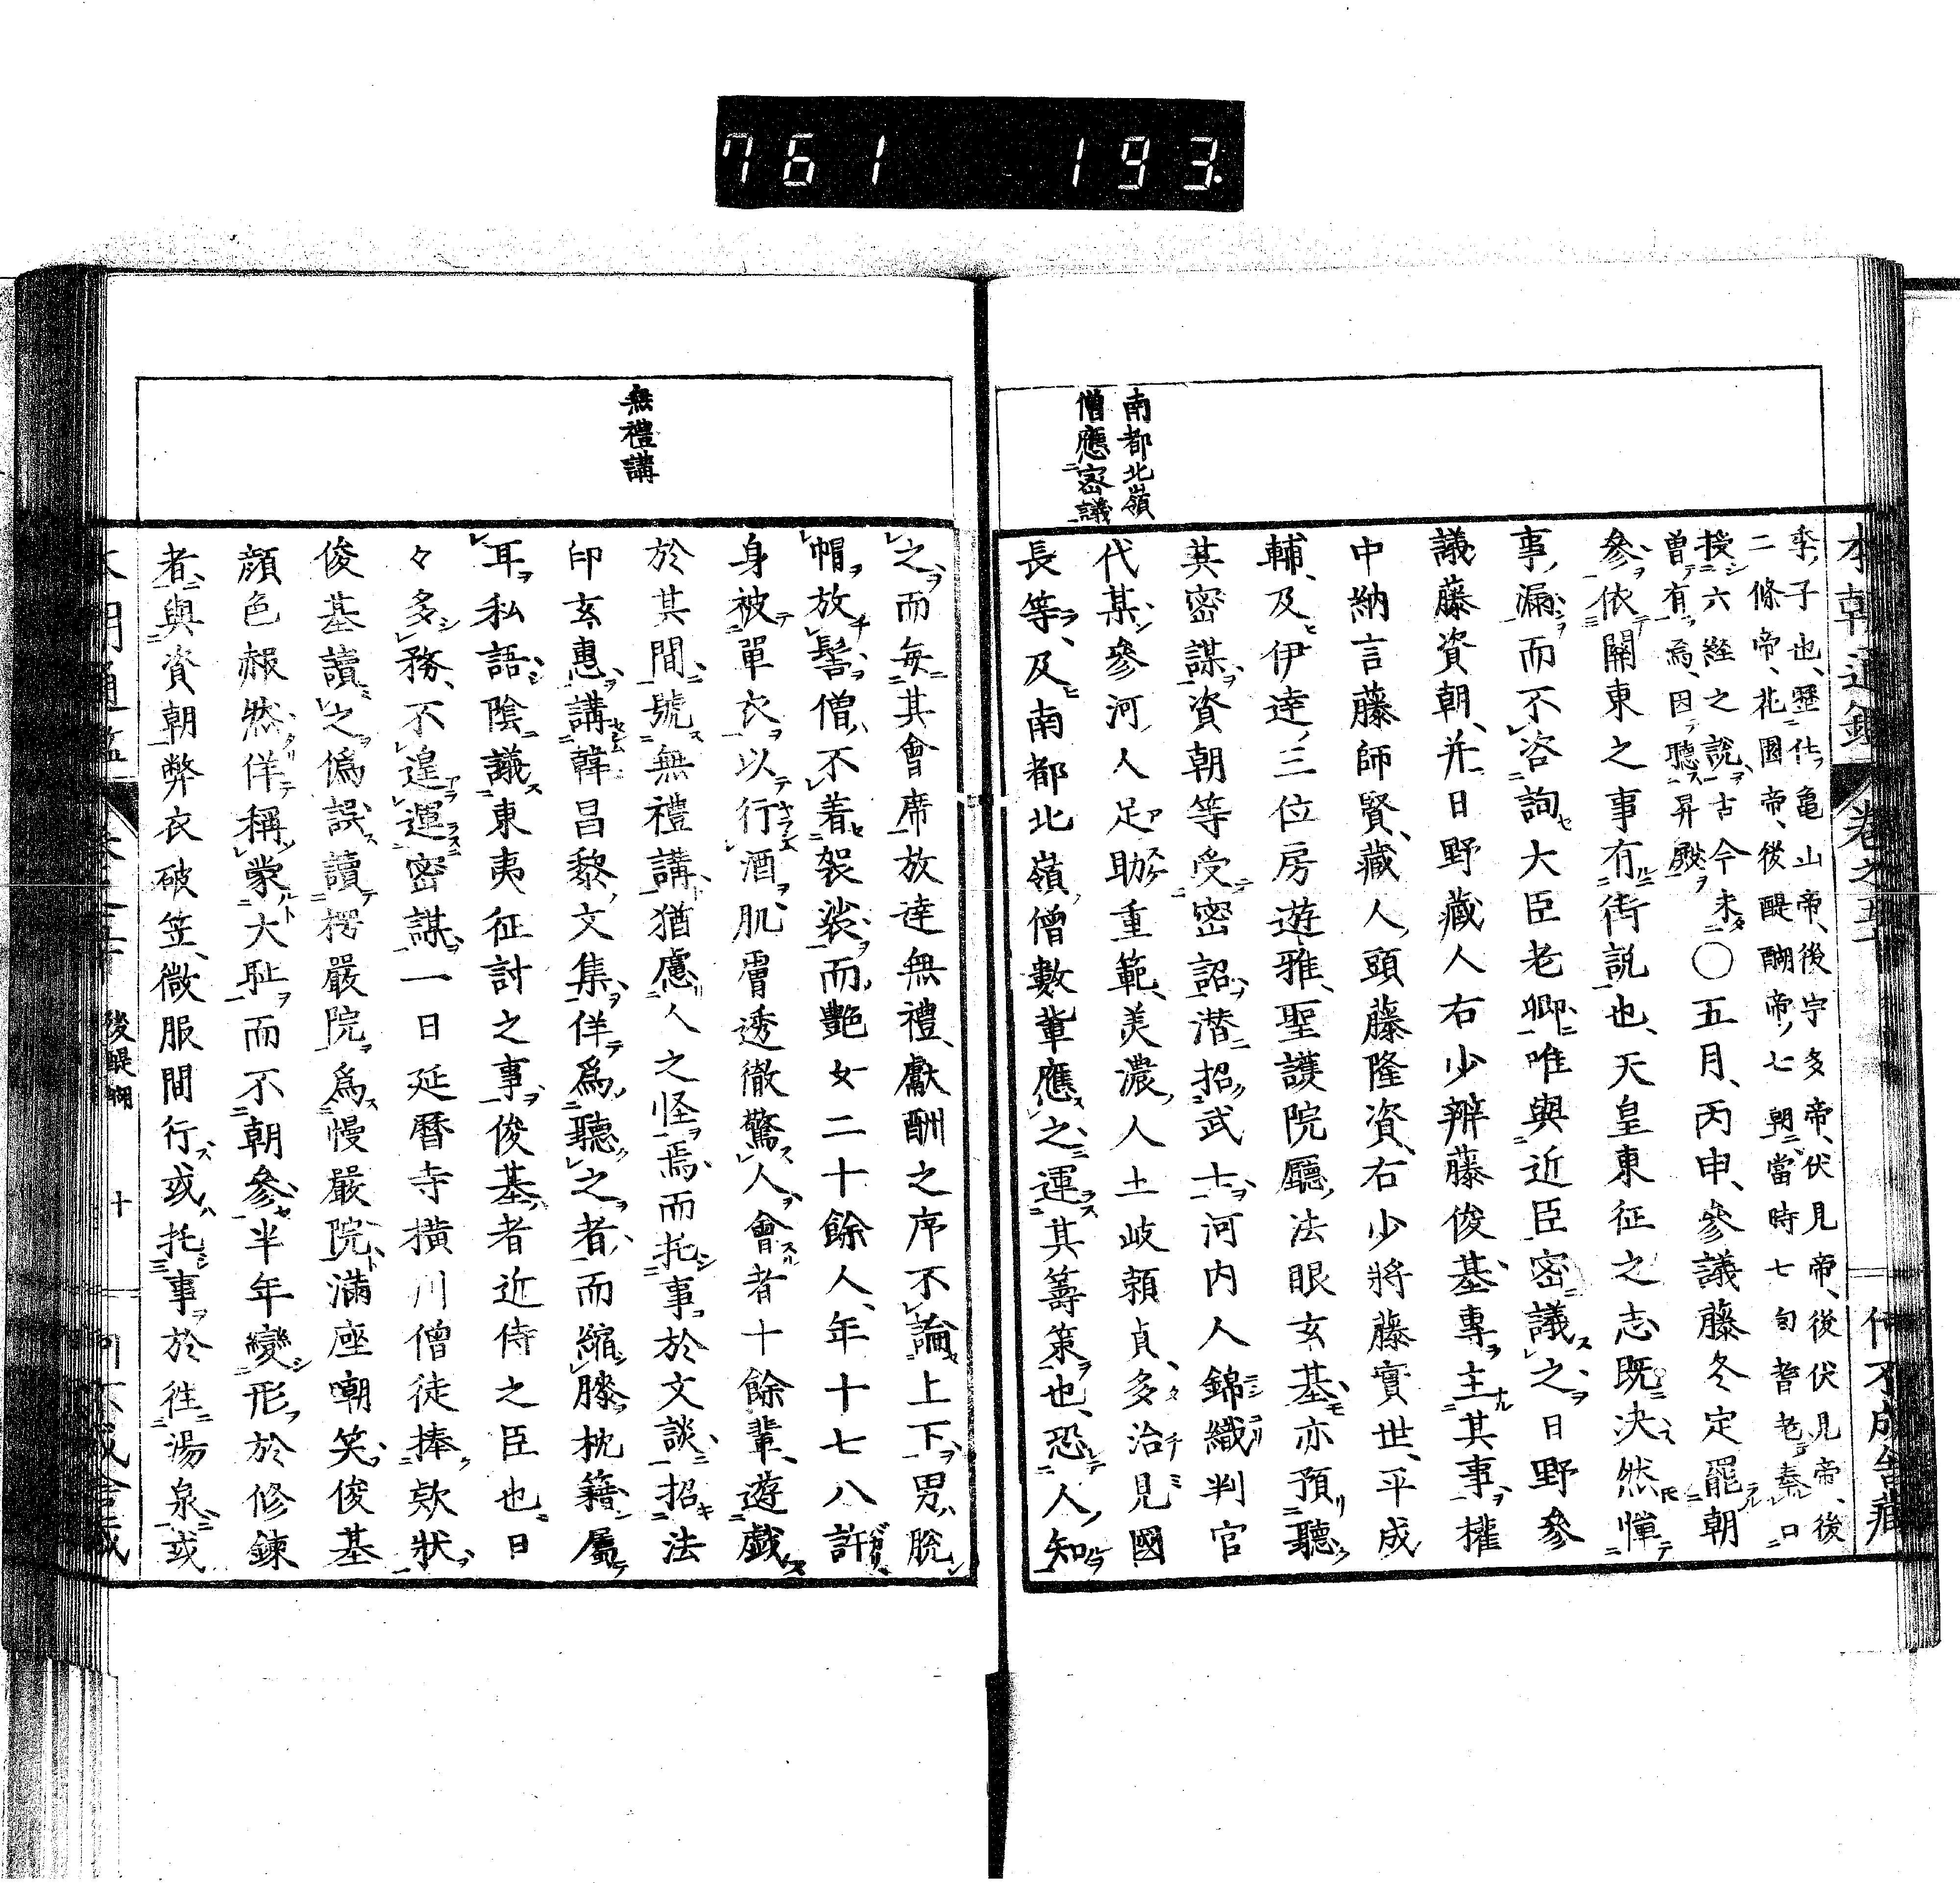 761 193
本朝通鑑 卷之五十
南都北嶺
僧應密議
季子也、歷仕龜山帝、後宇多帝、伏見帝、後伏見帝、後
二條帝、花園帝、後醍醐帝七朝當時七旬耆老秦口
授六經之說古今未
曾有焉、因聽昇殿
〇五月、丙申、參議藤冬定罷朝
參依關東之事有街說也、天皇東征之志既決然憚
事漏而不咨詢大臣老卿唯與近臣密議之日野參
議藤資朝、并日野藏人右少辨藤俊基專主其事權
中納言藤師賢、藏人頭藤隆資、右少將藤實世、平成
輔、及伊達三位房遊雅、聖護院廳法眼玄基亦預聽
其密謀資朝等受密詔潜招武士河内人錦織判官
代某參河人足助重範、美濃人土岐頼貞、多治見國
長等、及南都北嶺僧數輩應之運其籌策也、恐人知
無禮講
之而每其會席放達無禮、獻酬之序不論上下男脫
帽放髻僧不着袈裟而艷女二十餘人、年十七八許
身被單衣以行酒肌膚透徹驚人會者十餘輩、遊戯
於其間號無禮講猶慮人之怪焉而托事於文談招法
印玄惠講韓昌黎文集佯爲聽之者而縮膝枕籍屬
耳私語陰議東夷征討之事俊基者近侍之臣也日
々多務、不遑運密謀一日延曆寺横川僧徒捧款狀
俊基讀之僞誤讀楞嚴院爲慢嚴院滿座嘲笑俊基
顔色赧然佯稱蒙大恥而不朝參半年變形於修鍊
者與資朝弊衣破笠、微服間行或托事於徃湯泉或
後醍醐
十